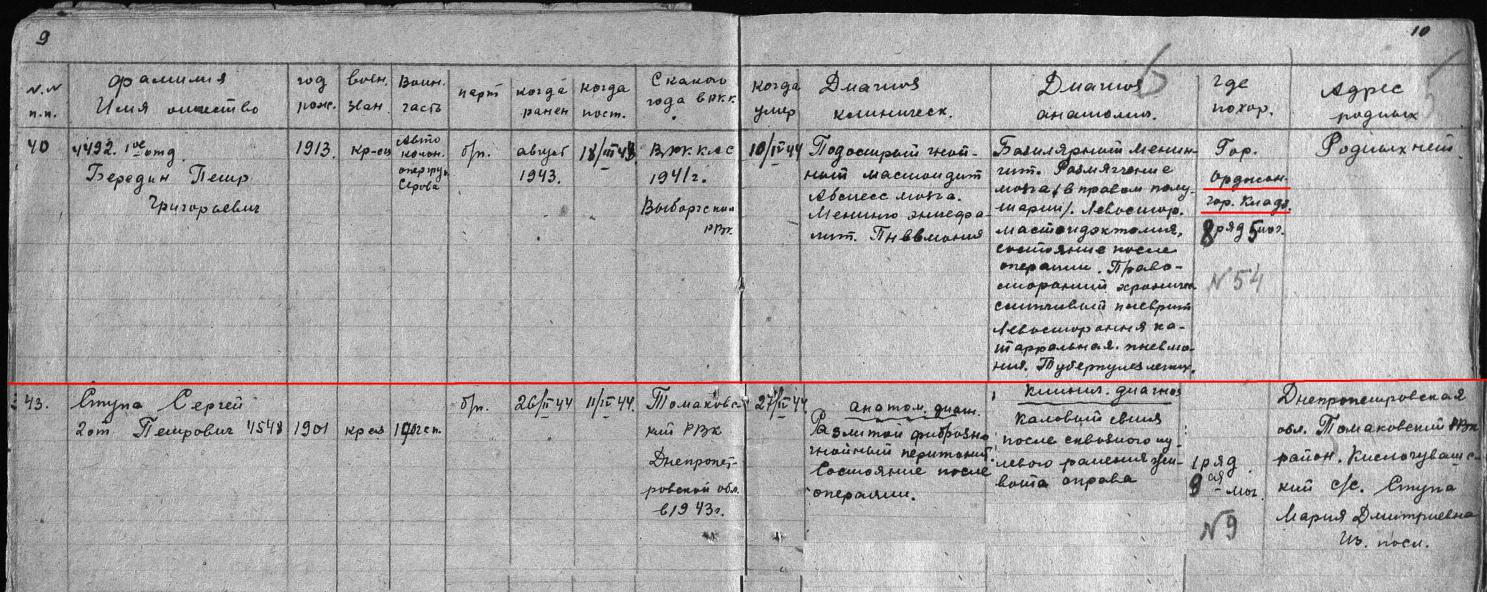 9
10
N.N п.п.
Фамилия Имя отчество
год рож.
воен. зван.
Воин. часть
парт
когда ранен
когда пост.
С какого года в РКК.
когда умер
Диагноз клиническ.
Диагноз анатомич.
Где похор.
Адрес родных
40
4492. 1ое отд.
Бередин Петр
Григорьевич
1913.
кр-ец
Авто
Серова
б/п.
август
1943.
18/III 43
1941г.
Выборгским
РВК.
10/IV 44
Подострый гной-
ный мастоидит
Абсцесс мозга.
Менинго энцефа-
лит. Пневмония
Базилярный менин-
гит. Размягчение
мозга /в правом полу-
шарии/. Левостор.
мастоидэктомия,
состояние после
операции. Право-
сторонний хроничес.
слипчивый плеврит
Левосторонняя ка-
тарральная пневмо-
ния. Туберкулез легких.
Гор.
Орджон.
гор. Кладб.
8 ряд 5 мог.
N 54
Родных нет.
43.
Ступа Сергей
2 от Петрович 4548
1901
кр-ец
б/п.
26/II 44
11/IV 44.
Томаковс-
кий РВК
Днепропет-
ровской обл.
в 1943г.
27/IV 44
Анатом. диагн.
Разлитой фиброзно
гнойный перитонит.
Состояние после
операции.
Клинич. диагноз
Каловый свищ
после сквозного пу-
левого ранения жи-
вота справа
1 ряд
9ая мог.
N 9
Днепропетровская
обл. Томаковский РВК
район. Кислочуваш с-
кий с/с. Ступа
Мария Дмитриевна
Из. посл.